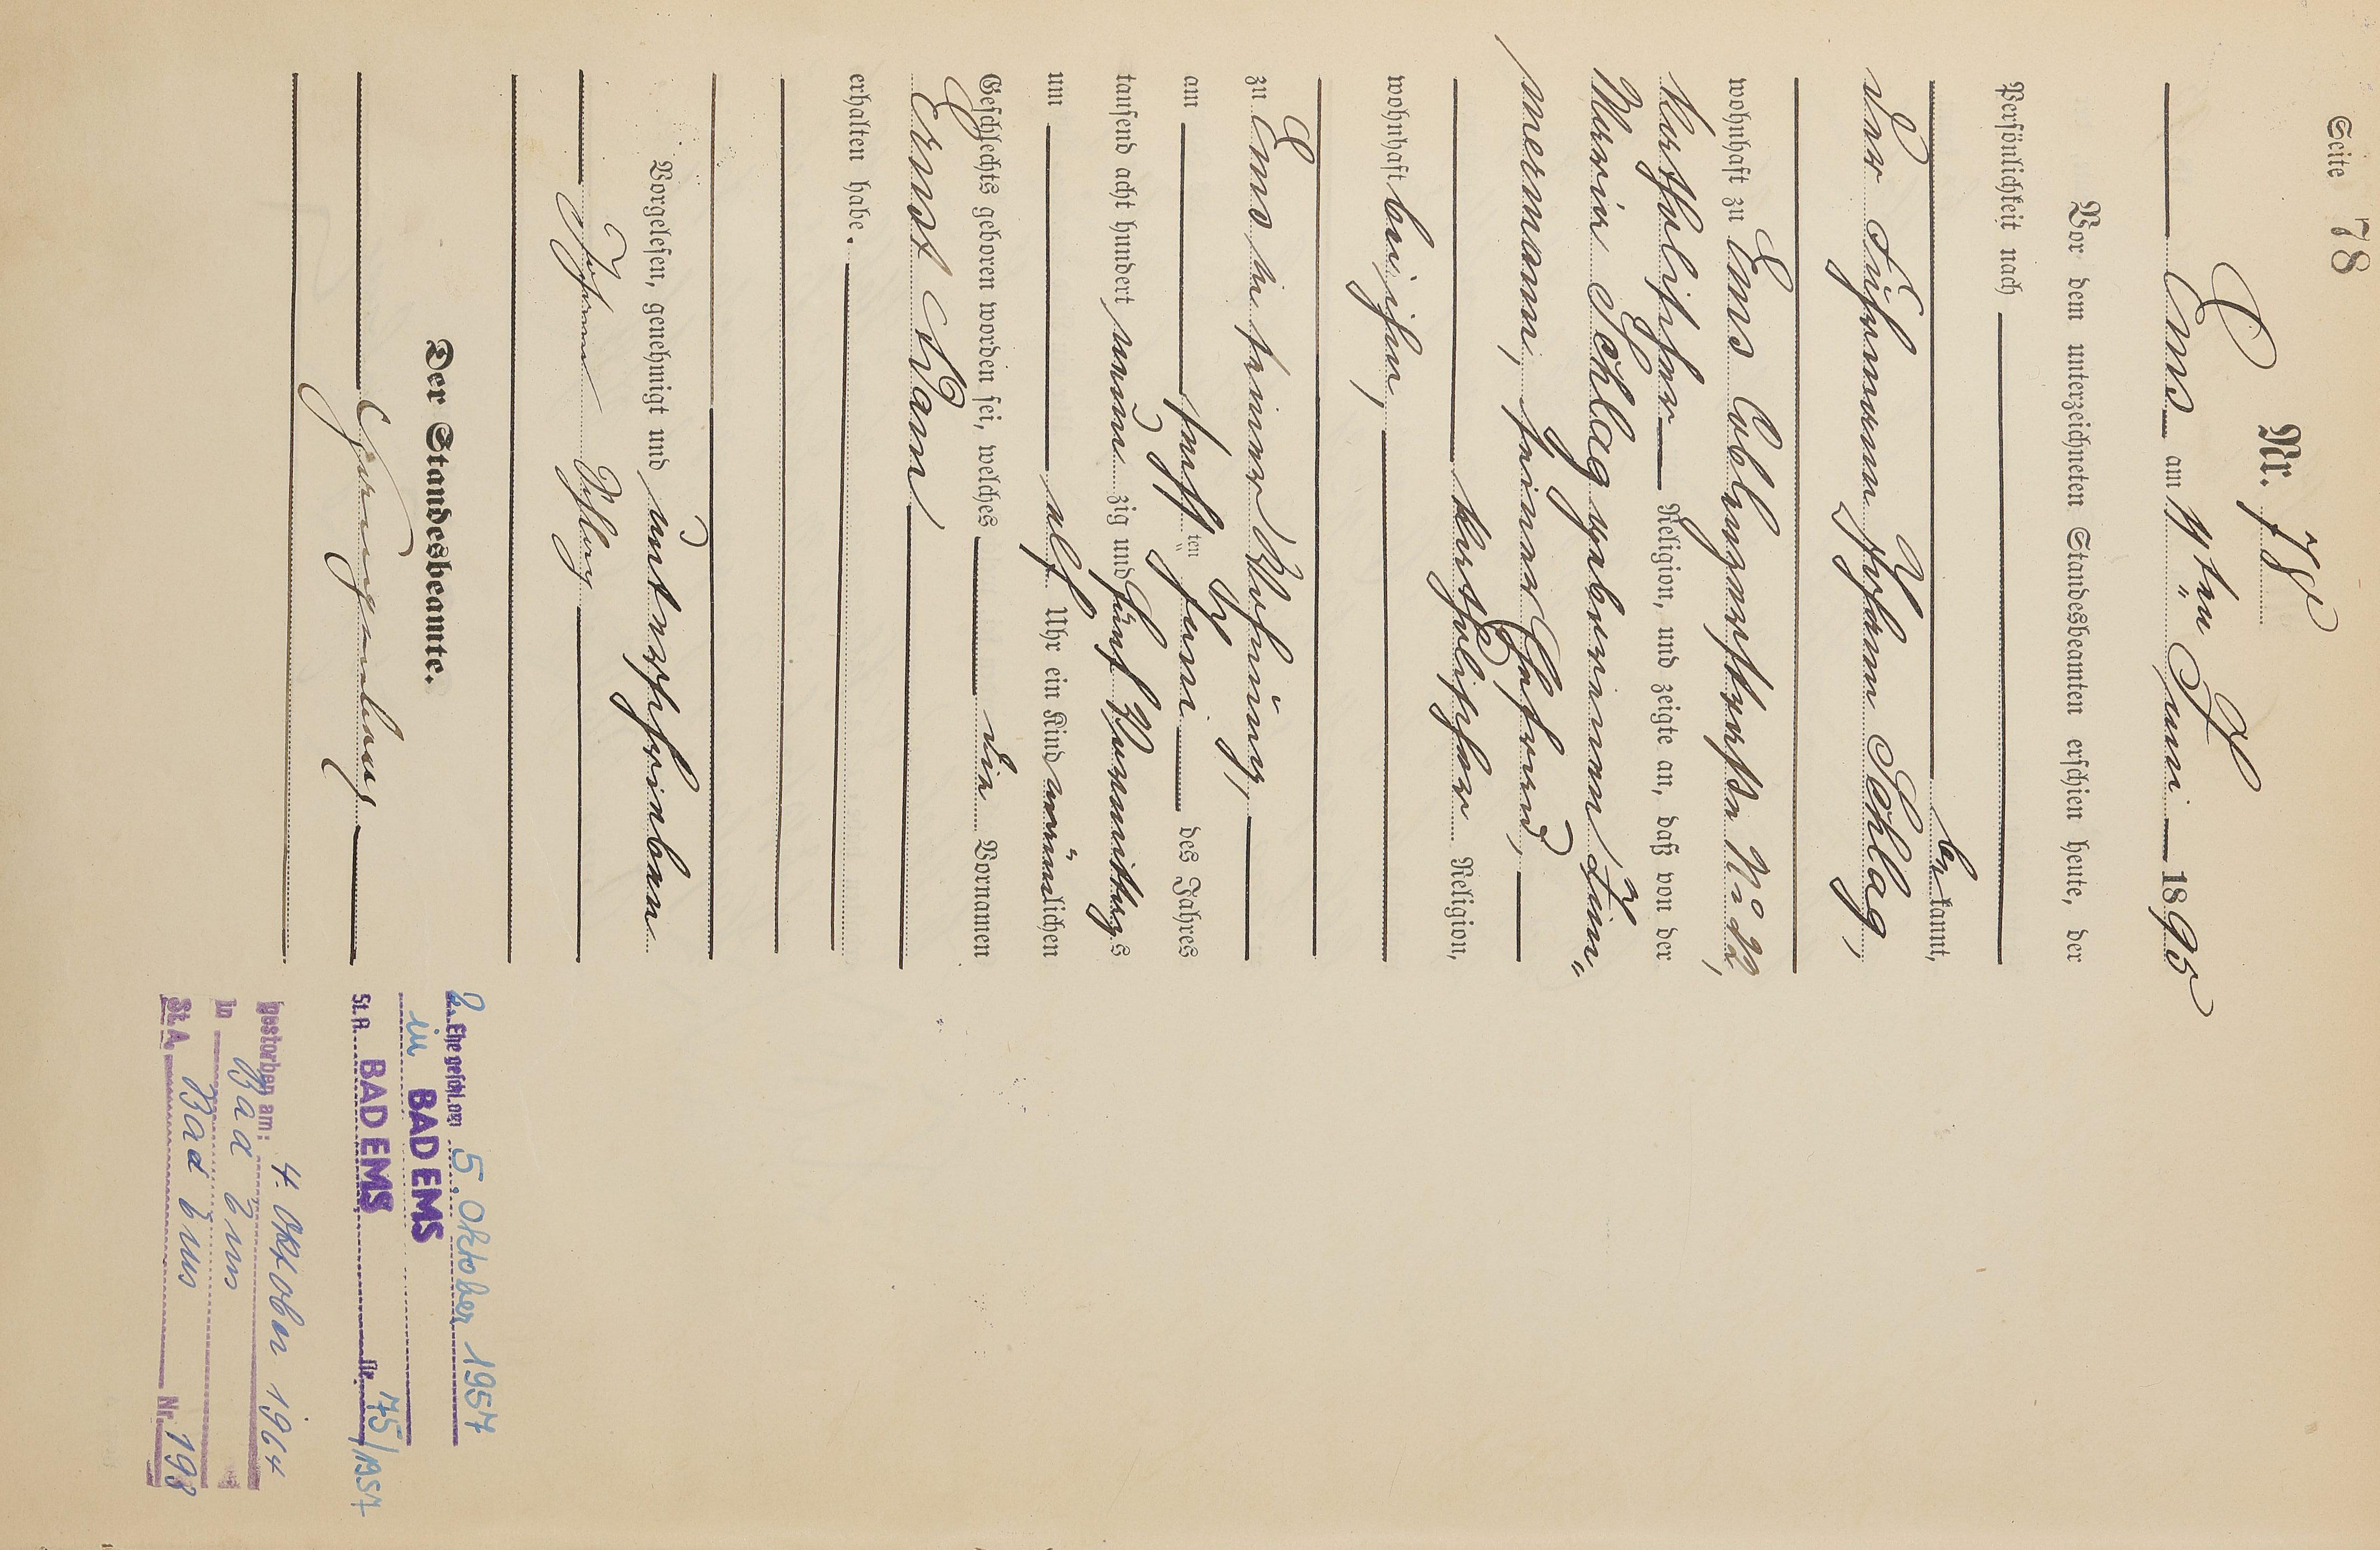 Seite 78
Nr. 78
Ems am 11ten Juni 1895
Vor dem unterzeichneten Standesbeamten erschien heute, der
Persönlichkeit nach
bekannt,
der Fuhrmann Johann Schlag,
wohnhaft zu Ems Coblenzerstraße No 22,
katholischer Religion, und zeigte an, daß von der
Maria Schlag geborenen Zim=
mermann, seiner Ehefrau,
katholischer Religion,
wohnhaft bei ihm,
zu Ems in seiner Wohnung,
am sechsten Juni des Jahres
tausend acht hundert neunzig und fünf Vormittags
um elf Uhr ein Kind männlichen
Geschlechts geboren worden sei, welches die Vornamen
Ernst Adam
erhalten habe.
Vorgelesen, genehmigt und unterschrieben
Johann Schlag
Der Standesbeamte.
2. Ehe geschl. am 5. Oktober 1957
in BAD EMS
St.A. BAD EMS Nr. 75/1957
gestorben am: 4. Oktober 1964
in Bad Ems
St.A. Bad Ems Nr. 198